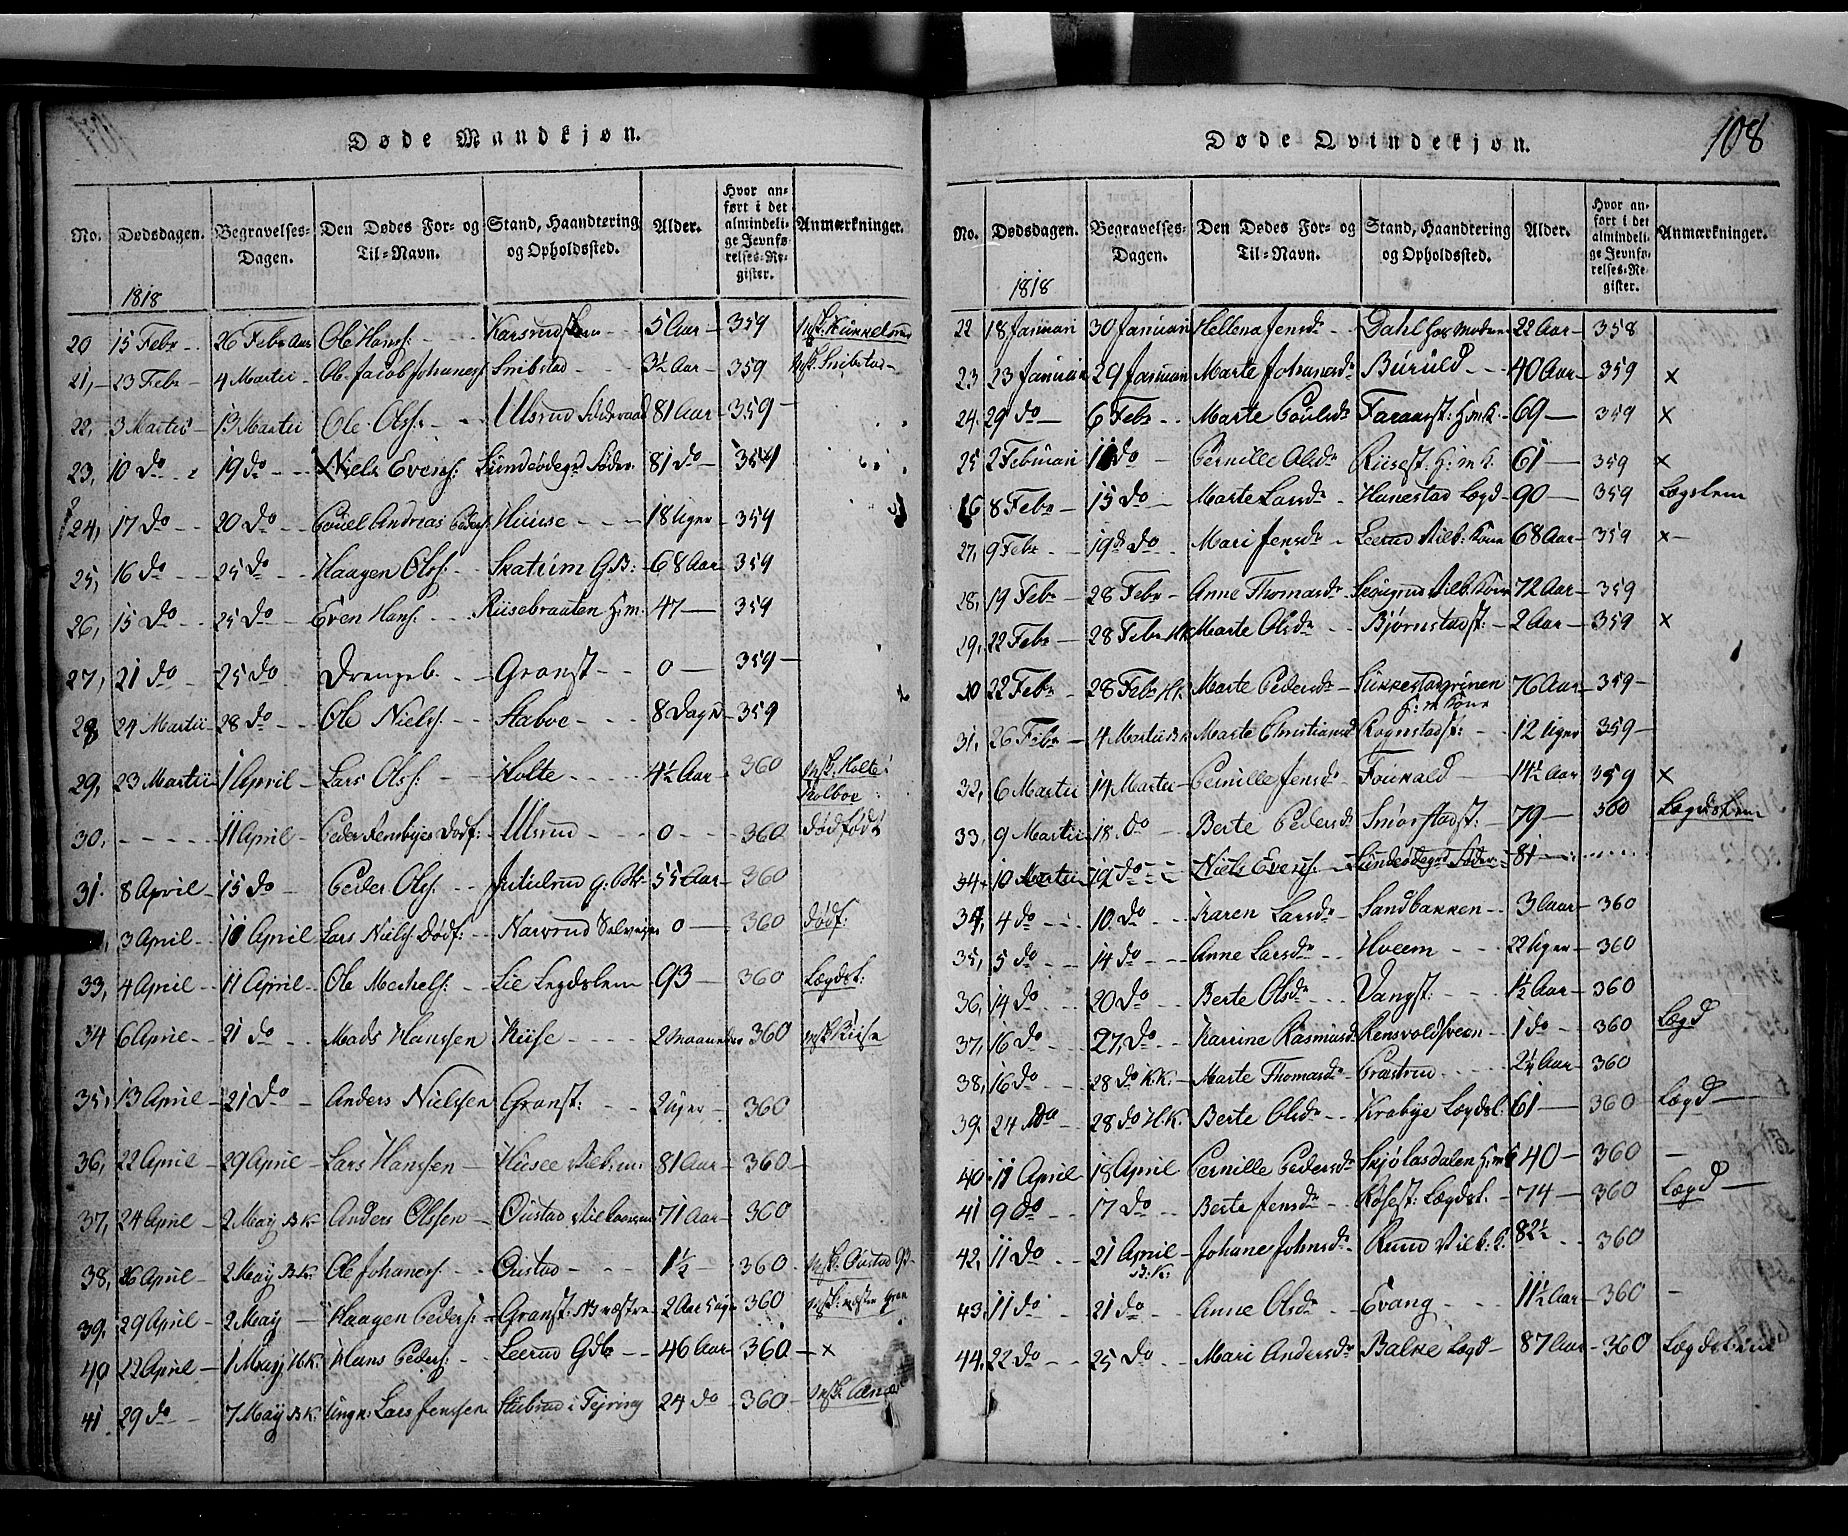 Døde Mandkjøn.
No. Dødsdagen. Begravelses-Dagen. Den Dødes For- og Til-Navn. Stand, Haandtering og Opholdssted. Alder. Hvor anført i det almindelige Jevnførelses-Register. Anmærkninger.
1818
20 15 Febr 26 Febr Ole Hans: 5 Aar 359
21, 23 Febr 4 Martii Ole Jacob Johanes: Snibstad 3½ Aar 359 Snibstad
22, 3 Martii 13 Martii Ole Ols: Ulsrud 81 Aar 359
23, 10 Do 19 Do Niels Evens: 81 Do 359
24, 17 Do 20 Do Poul Andreas Peders: Huuse 18 Uger 359
25, 16 Do 25 Do Haagen Ols: Skatrum G.B: 68 Aar 359
26, 15 Do 25 Do Even Hans: Riisebraaten H:m. 47 359
27, 21 Do 25 Do Drengeb. Granst 0 359
28 24 Martii 28 Do Ole Niels: Staboe 8 Dage 359
29, 23 Martii 1 April Lars Ols: Holte 4½ Aar 360 Holte
30, 11 April Peder Dødf: Ulsrud 0 360 dødfødt
31. 8 April 15 Do Peder Ols: 55 Aar 360
3 April 10 April Lars Niels Dødf: 0 360 dødf:
33, 4 April 11 April Ole Meckels: Lie Legdslem 93 360 Lægdsl:
34 6 April 21 Do Mads Hanssen Riise 2 Maaneder 360 Riise
35, 13 April 21 Do Anders Nielssen Granst: 2 Uger 360
36, 22 April 29 April Lars Hanssen 81 Aar 360
37, 24 April 2 May B.K. Anders Olssen Oustad 71 Aar 360
38, 26 April 2 May B.K. Ole Johanes: Oustad 1½ 360 Oustad
39, 29 April 2 May Haagen Peders: Granst: 2 Aar 360
40, 22 April 1 May H.K. Hans Peders: Leerud Gdb 46 Aar 360 x
41 29 do 7 May B.K. Ungk: Lars Jenssen i Tejring 24 do 360
Døde Qvindekjøn. 108
No. Dødsdagen. Begravelses-Dagen. Den Dødes For- og Til-Navn. Stand, Haandtering og Opholdssted. Alder. Hvor anført i det almindelige Jevnførelses-Register. Anmærkninger.
1818
22 18 Januari 30 Januari Hellena Jensdr Dahl 22 Aar 358
23 23 Januari 29 Januari Marte Johanesdr Buruld 40 Aar 359 x
24. 29 do 6 Febr Marte Poulsdr 69 359 x
25 2 Februari 11 do Pernille Olsdr Riisest: H:m K: 61 359 x
26 8 Febr 15 do Marte Larsdr Hanestad Lægd 90 359 Lægslem
27, 9 Febr 19 do Mari Jensdr Leerud Kone 68 Aar 359 x
28, 19 Febr 28 Febr Anne Thomasdr 72 Aar 359
29, 22 Febr 28 Febr H.K. Marte Olsdr Bjørnstadst: 2 Aar 359 x
30 22 Febr 28 Febr H.K. Marte Pedersdr H:m Kone 76 Aar 359
31, 26 Febr 4 Martii Marte Christiansd Rognstadst: 12 Uger 359
32, 6 Martii 14 Martii Pernille Jensdr 14½ Aar 359 x
33, 9 Martii 18. do Berte Pedersdr Smørstadst: 79 360 Lægdslem
34 10 Martii 19 do Niels Evens: 81
34, 4 do 10. do Karen Larsdr Sandbakken 3 Aar 360
35, 5 do 14 do Anne Larsdr Hveem 22 Uger 360
36, 14 do 20 do Berte Olsdr Vangst: 1½ Aar 360
37, 16 do 27, do Karrine Rasmusdr Rensvoldsveen 1 do 360 Lægd
38, 16 do 28 do K.K. Marte Thomasdr Præstrud 2½ Aar 360
39. 24 do 28 do H.K. Berte Olsdr Krabye Lægdsl: 61 360 Lægd
40. 11 April 18 April Pernille Pedersdr 40 360
41 9 do 17 do Berte Jensdr Røisest: Lægdsl. 74 360 Lægd
42, 11 do 21 April B:K: Johane Johnsdr Ruud 82½ 360
43. 11 do 21 do Anne Olsdr Evang 11½ Aar 360
44. 22 do 25 do Mari Andersdr Balke Lægd 87 Aar 360